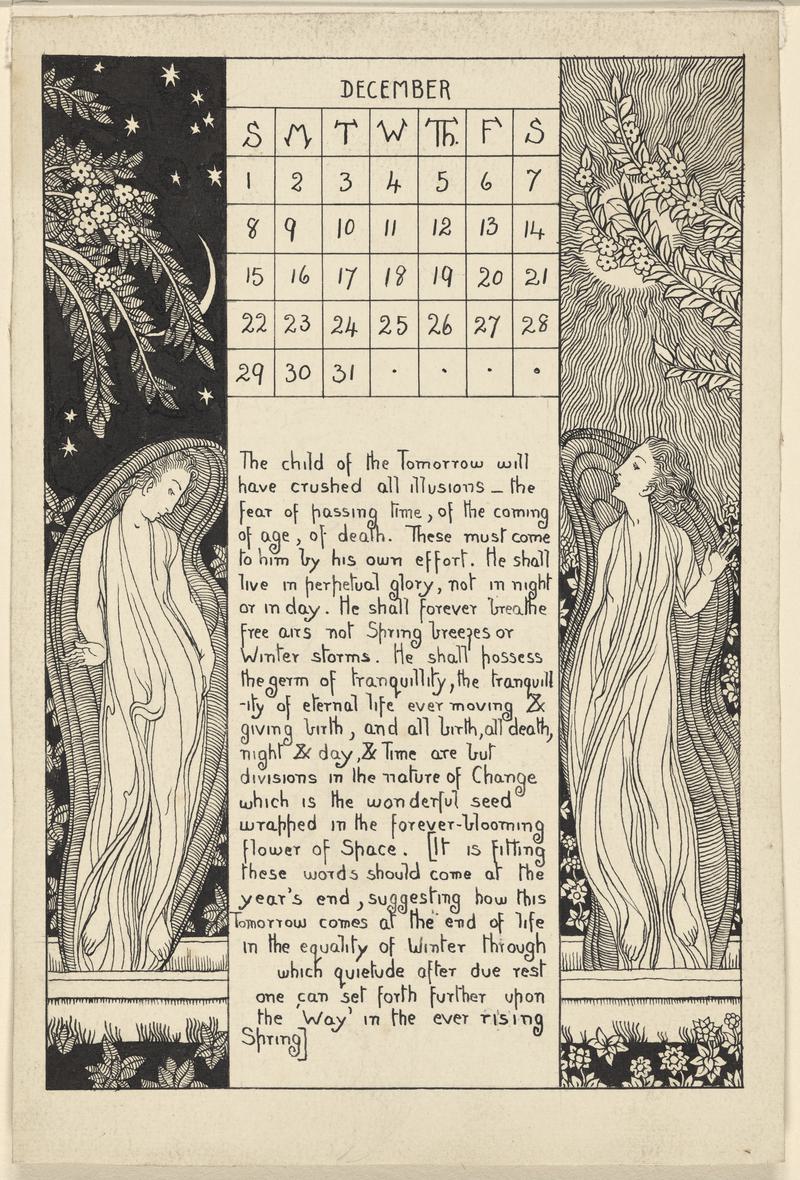 DECEMBER
S M T W Th. F S
1 2 3 4 5 6 7
8 9 10 11 12 13 14
15 16 17 18 19 20 21
22 23 24 25 26 27 28
29 30 31 . . . .
The child of the Tomorrow will
have crushed all illusions – the
fear of passing time, of the coming
of age, of death. These must come
to him by his own effort. He shall
live in perpetual glory, not in night
or in day. He shall forever breathe
free airs not Spring breezes or
Winter storms. He shall possess
the germ of tranquillity, the tranquill
-ity of eternal life ever moving &
giving birth, and all birth, all death,
night & day, & Time are but
divisions in the nature of Change
which is the wonderful seed
wrapped in the forever-blooming
flower of Space. [It is fitting
these words should come at the
year's end, suggesting how this
Tomorrow comes at the end of life
in the equality of Winter through
which quietude after due rest
one can set forth further upon
the 'Way' in the ever rising
Spring]